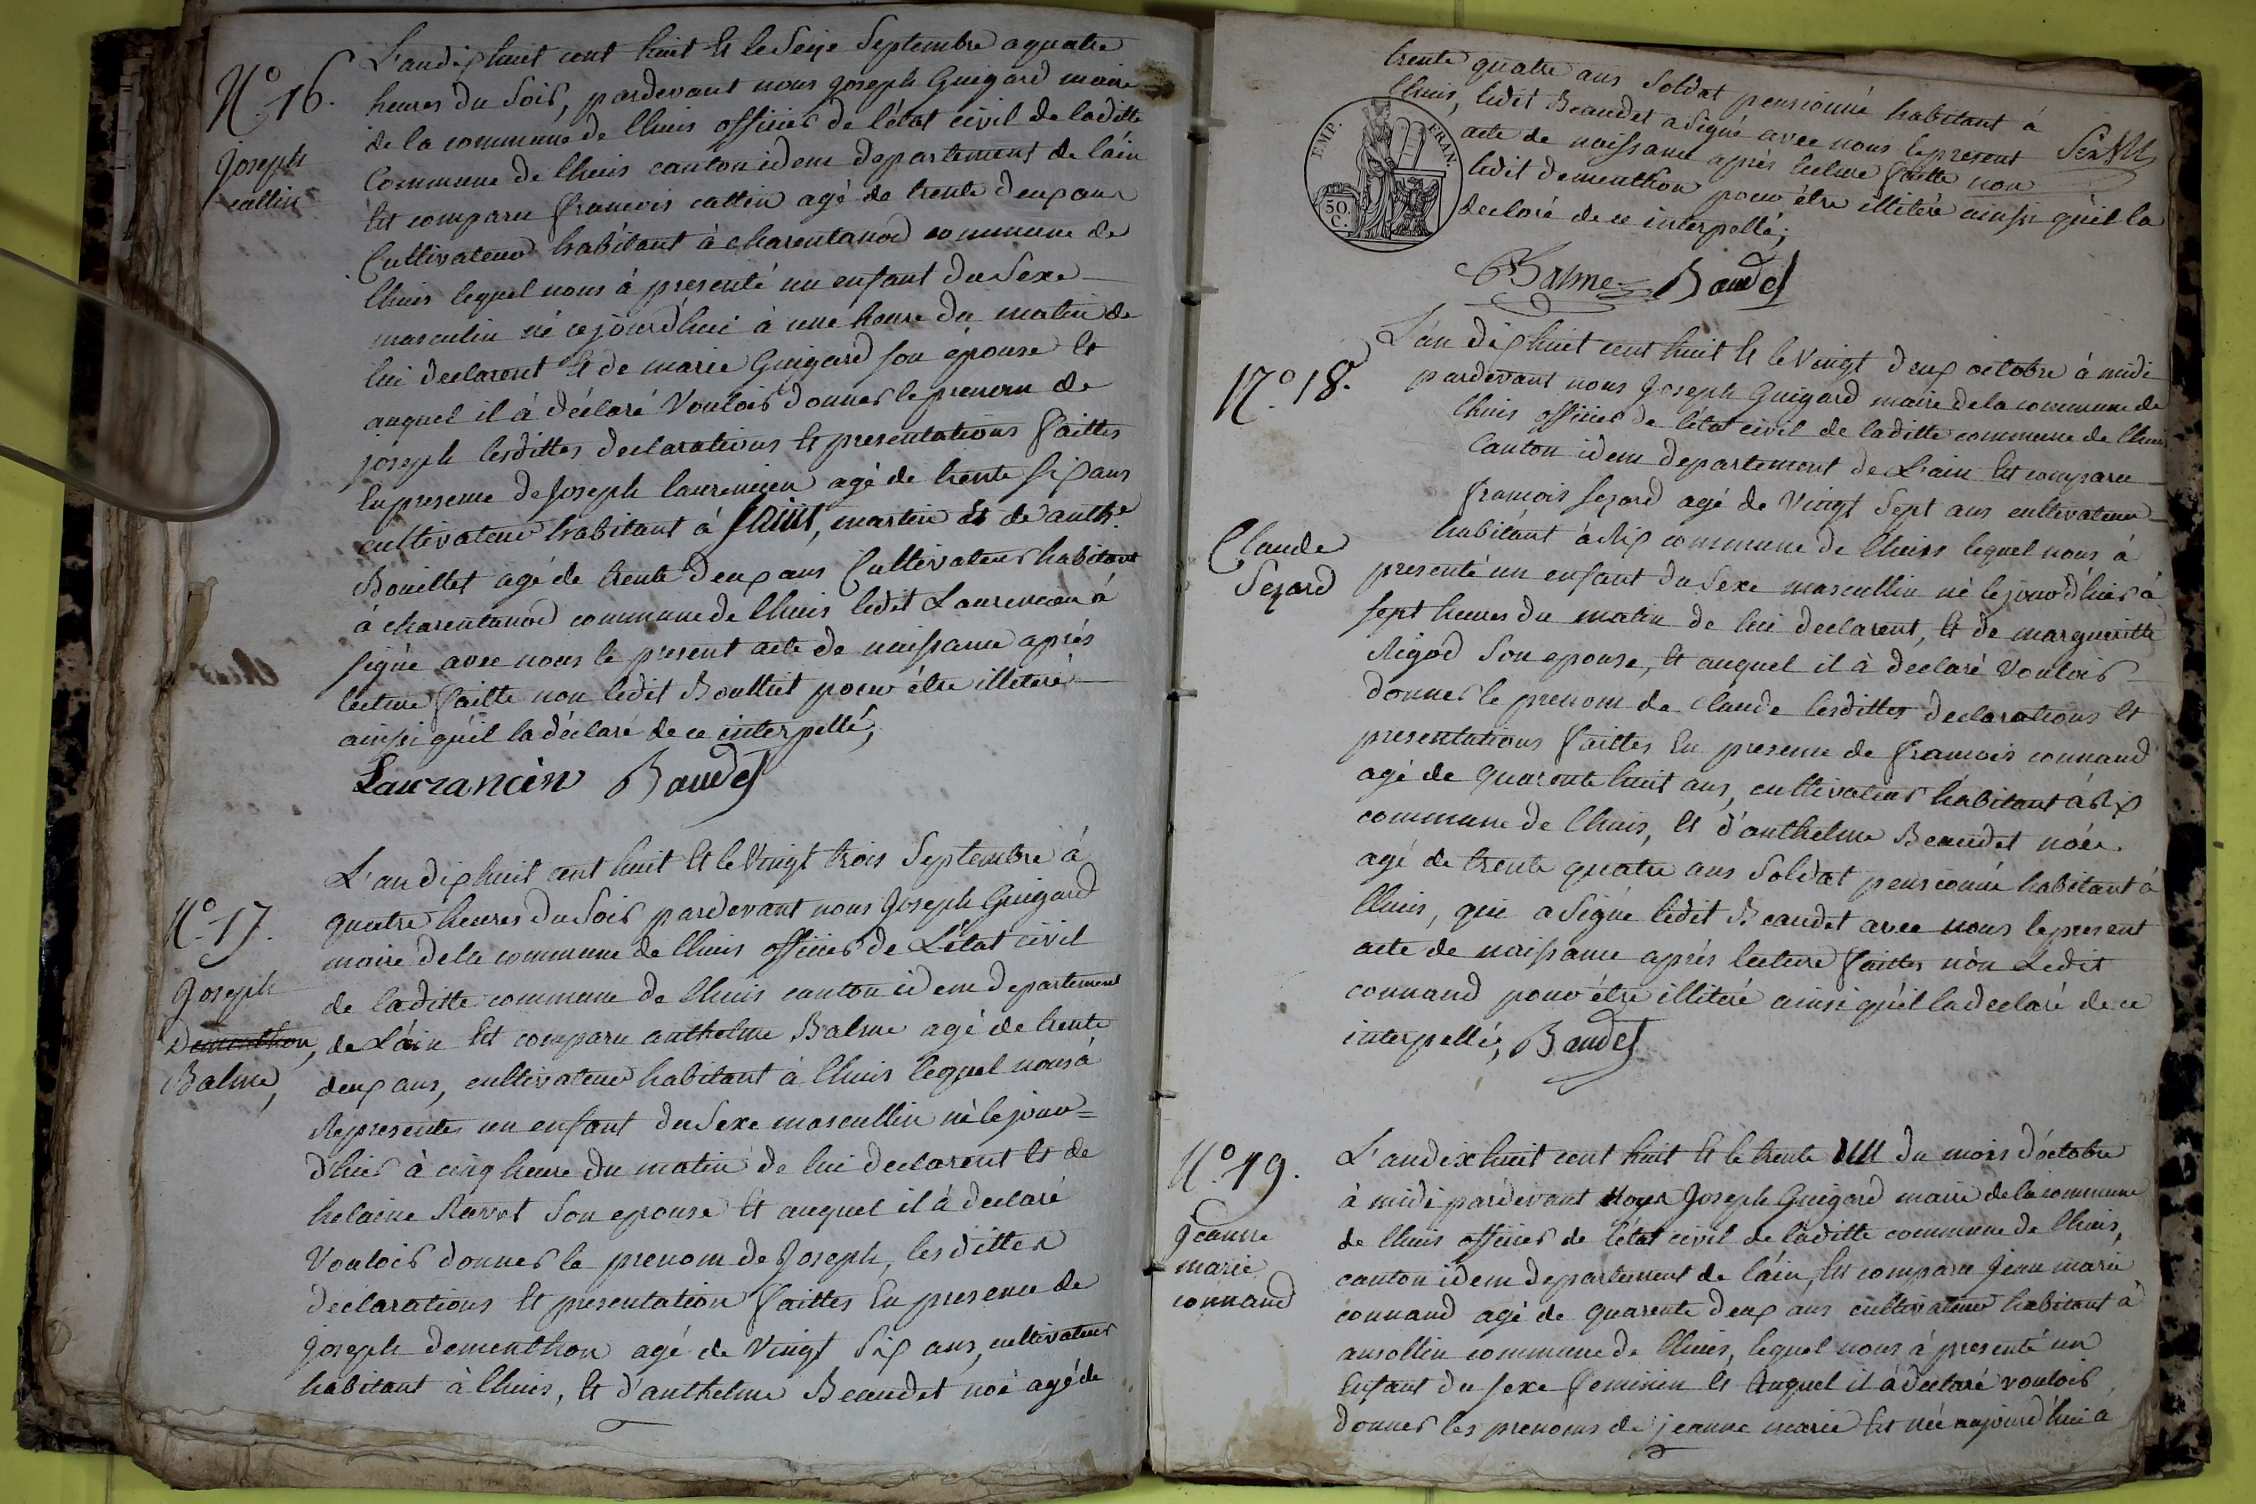 N.° 16.
Joseph
cattin
L'an dix huit cent huit Et le Seize Septembre a quatre
heures du Soir, pardevant nous Joseph Guigard maire
de la commune de lhuis officier de l'état civil de laditte
Commune de lhuis canton idem departement de láin
Est comparu francois cattin agé de trente deux ans
Cultivateur habitant à charentanod commune de
lhuis lequel nous à presenté un enfant du Sexe
masculin né cejourd'huié à une heure du matin de
lui declarent Et de marie Guigard son épouse Et
auquel il à déclaré Vouloir donner le prenom de
joseph lesdittes declarations Et presentations faittes
En presence de Joseph laurencien agé de trente six ans
cultivateur habitant à saint, martin Et de anthe
Bouillet agé de trente deux ans Cultivateur habitant
à charentanod commune de lhuis ledit Laurencien à
signé avec nous le present acte de naissance aprés
lecture faitte non ledit Boulliet pour étre illiteré
ainsi qu'il la déclaré de ce interpellé,
Laurancin Baudet
N.° 17.
Joseph
Dementhon,
Balme,
L'an dix huit cent huit Et le Vingt trois Septembre à
quatre heures du Soir pardevant nous Joseph Guigard
maire de la commune de lhuis officier de L'état civil
de laditte commune de lhuis canton idem departement
de Láin Est comparu anthelme Balme agé de trente
deux ans, cultivateur habitant à lhuis lequel nous à
Representer un enfant du Sexe mascullin né le jour=
d'hier à cinq heure du matin de lui declarent Et de
helaine Ravet Son epouse Et auquel il à declaré
Vouloir donner le prenom de Joseph, lesdittes
declarations Et presentation faittes En presence de
Joseph dementhon agé de Vingt Six ans, cultivateur
habitant à lhuis, Et d'anthelme Beaudet noé agé de
trente quatre ans Soldat pensionné habitant à
lhuis, ledit Beaudet a Signé avec nous le present
acte de naissance aprés lecture faitte non
ledit dementhon pour étre illiteré ainsi qu'il la
declaré de ce interpellé;
EMP. FRAN.
50.
C.
Balme Baudet
N.° 18.
Claude
Sezard
L'an dix huit cent huit Et le Vingt deux octobre à midi
pardevant nous Joseph Guigard maire de la commune de
lhuis officier de l'état civil de laditte commune de lhuis
Canton idem departement de L'ain Est comparu
francois Sezard agé de Vingt Sept ans cultivateur
habitant à Rix commune de lhuiss lequel nous à
presenté un enfant du Sexe mascullin né le jourd'hier à
sept heures du matin de lui declarent, Et de margueritte
Rigod Son epouse, Et auquel il à déclaré Vouloir
donner le prenom de Claude lesdittes declarations Et
presentations faittes En presence de francois connand
agé de quarente huit ans, cultivateur habitant à Rix
commune de lhuis, Et d'anthelme Beaudet noée
agé de trente quatre ans Soldat pensionné habitant à
lhuis, qui a Signé ledit Beaudet avec nous le present
acte de naissance aprés lecture faittes nón Ledit
connand pour étre illiteré ainsi qu'il la declaré de ce
interpellé; Baudet
N.° 19.
Jeanne
marie
connand
L'an dix huit cent huit Et le trente un du mois d'octobre
à midi pardevant Nous Joseph Guigard maire de la commune
de lhuis officier de l'état civil de laditte commune de lhuis,
canton idem departement de láin, Est comparu Jean marie
connand agé de quarente deux ans cultivateur habitant à
ansollin commune de lhuis, lequel nous à presenté un
Enfant du sexe feminin Et Auquel il à declaré vouloir
donner les prenoms de jeanne marie Est née aujourd'hui à